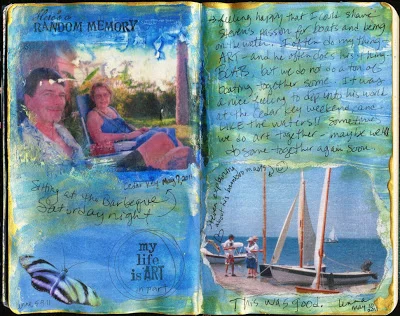 Here's a
RANDOM MEMORY
Cedar Key May 7, 2011
Sitting at the Barbeque
Saturday night
my
life
is ART
→ feeling happy that I could share
Steven's passion for boats and being
on the water. I often do my thing
ART - and he often does his thing
BOATS but we do not do a ton of
boating together some. It was
a nice feeling to dip into his world
at the Cedar Key weekend and
Sometimes
we do art together - maybe we'll
do some together again soon.
Steven explaining
bamboo masts
This was good.
May